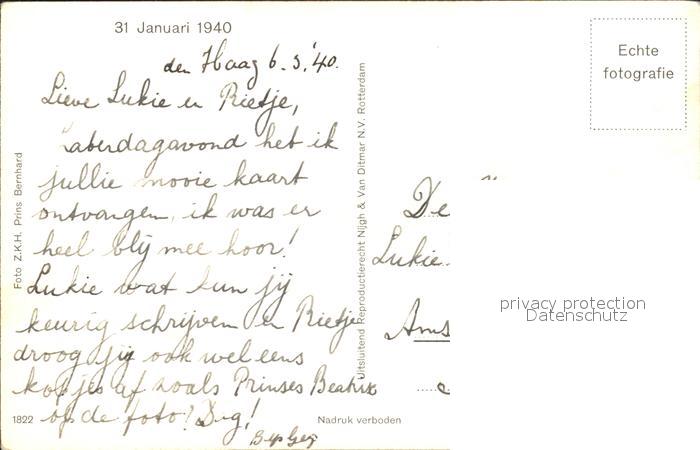 31 Januari 1940
den Haag 6.3.'40.
Lieve Lukie en Rietje,
Zaterdagavond heb ik
jullie mooie kaart
ontvangen, ik was er
heel blij mee hoor!
Lukie wat kun jij
keurig schrijven en Rietje
droog jij ook wel eens
kopjes af zoals Prinses Beatrix
op de foto? Dag!
Foto Z.K.H. Prins Bernhard
1822
Nadruk verboden
Uitsluitend Reproductierecht Nijgh & Van Ditmar N.V. Rotterdam
Echte
fotografie
De
Lukie
Ams
privacy protection
Datenschutz